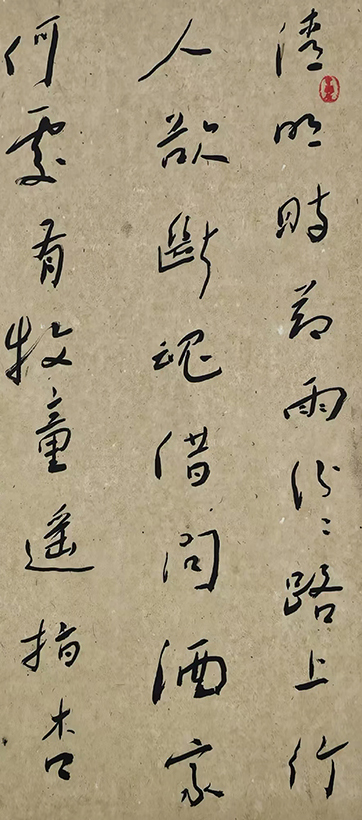 清明時節雨紛〻路上行
人欲斷魂借問酒家
何處有牧童遥指杏